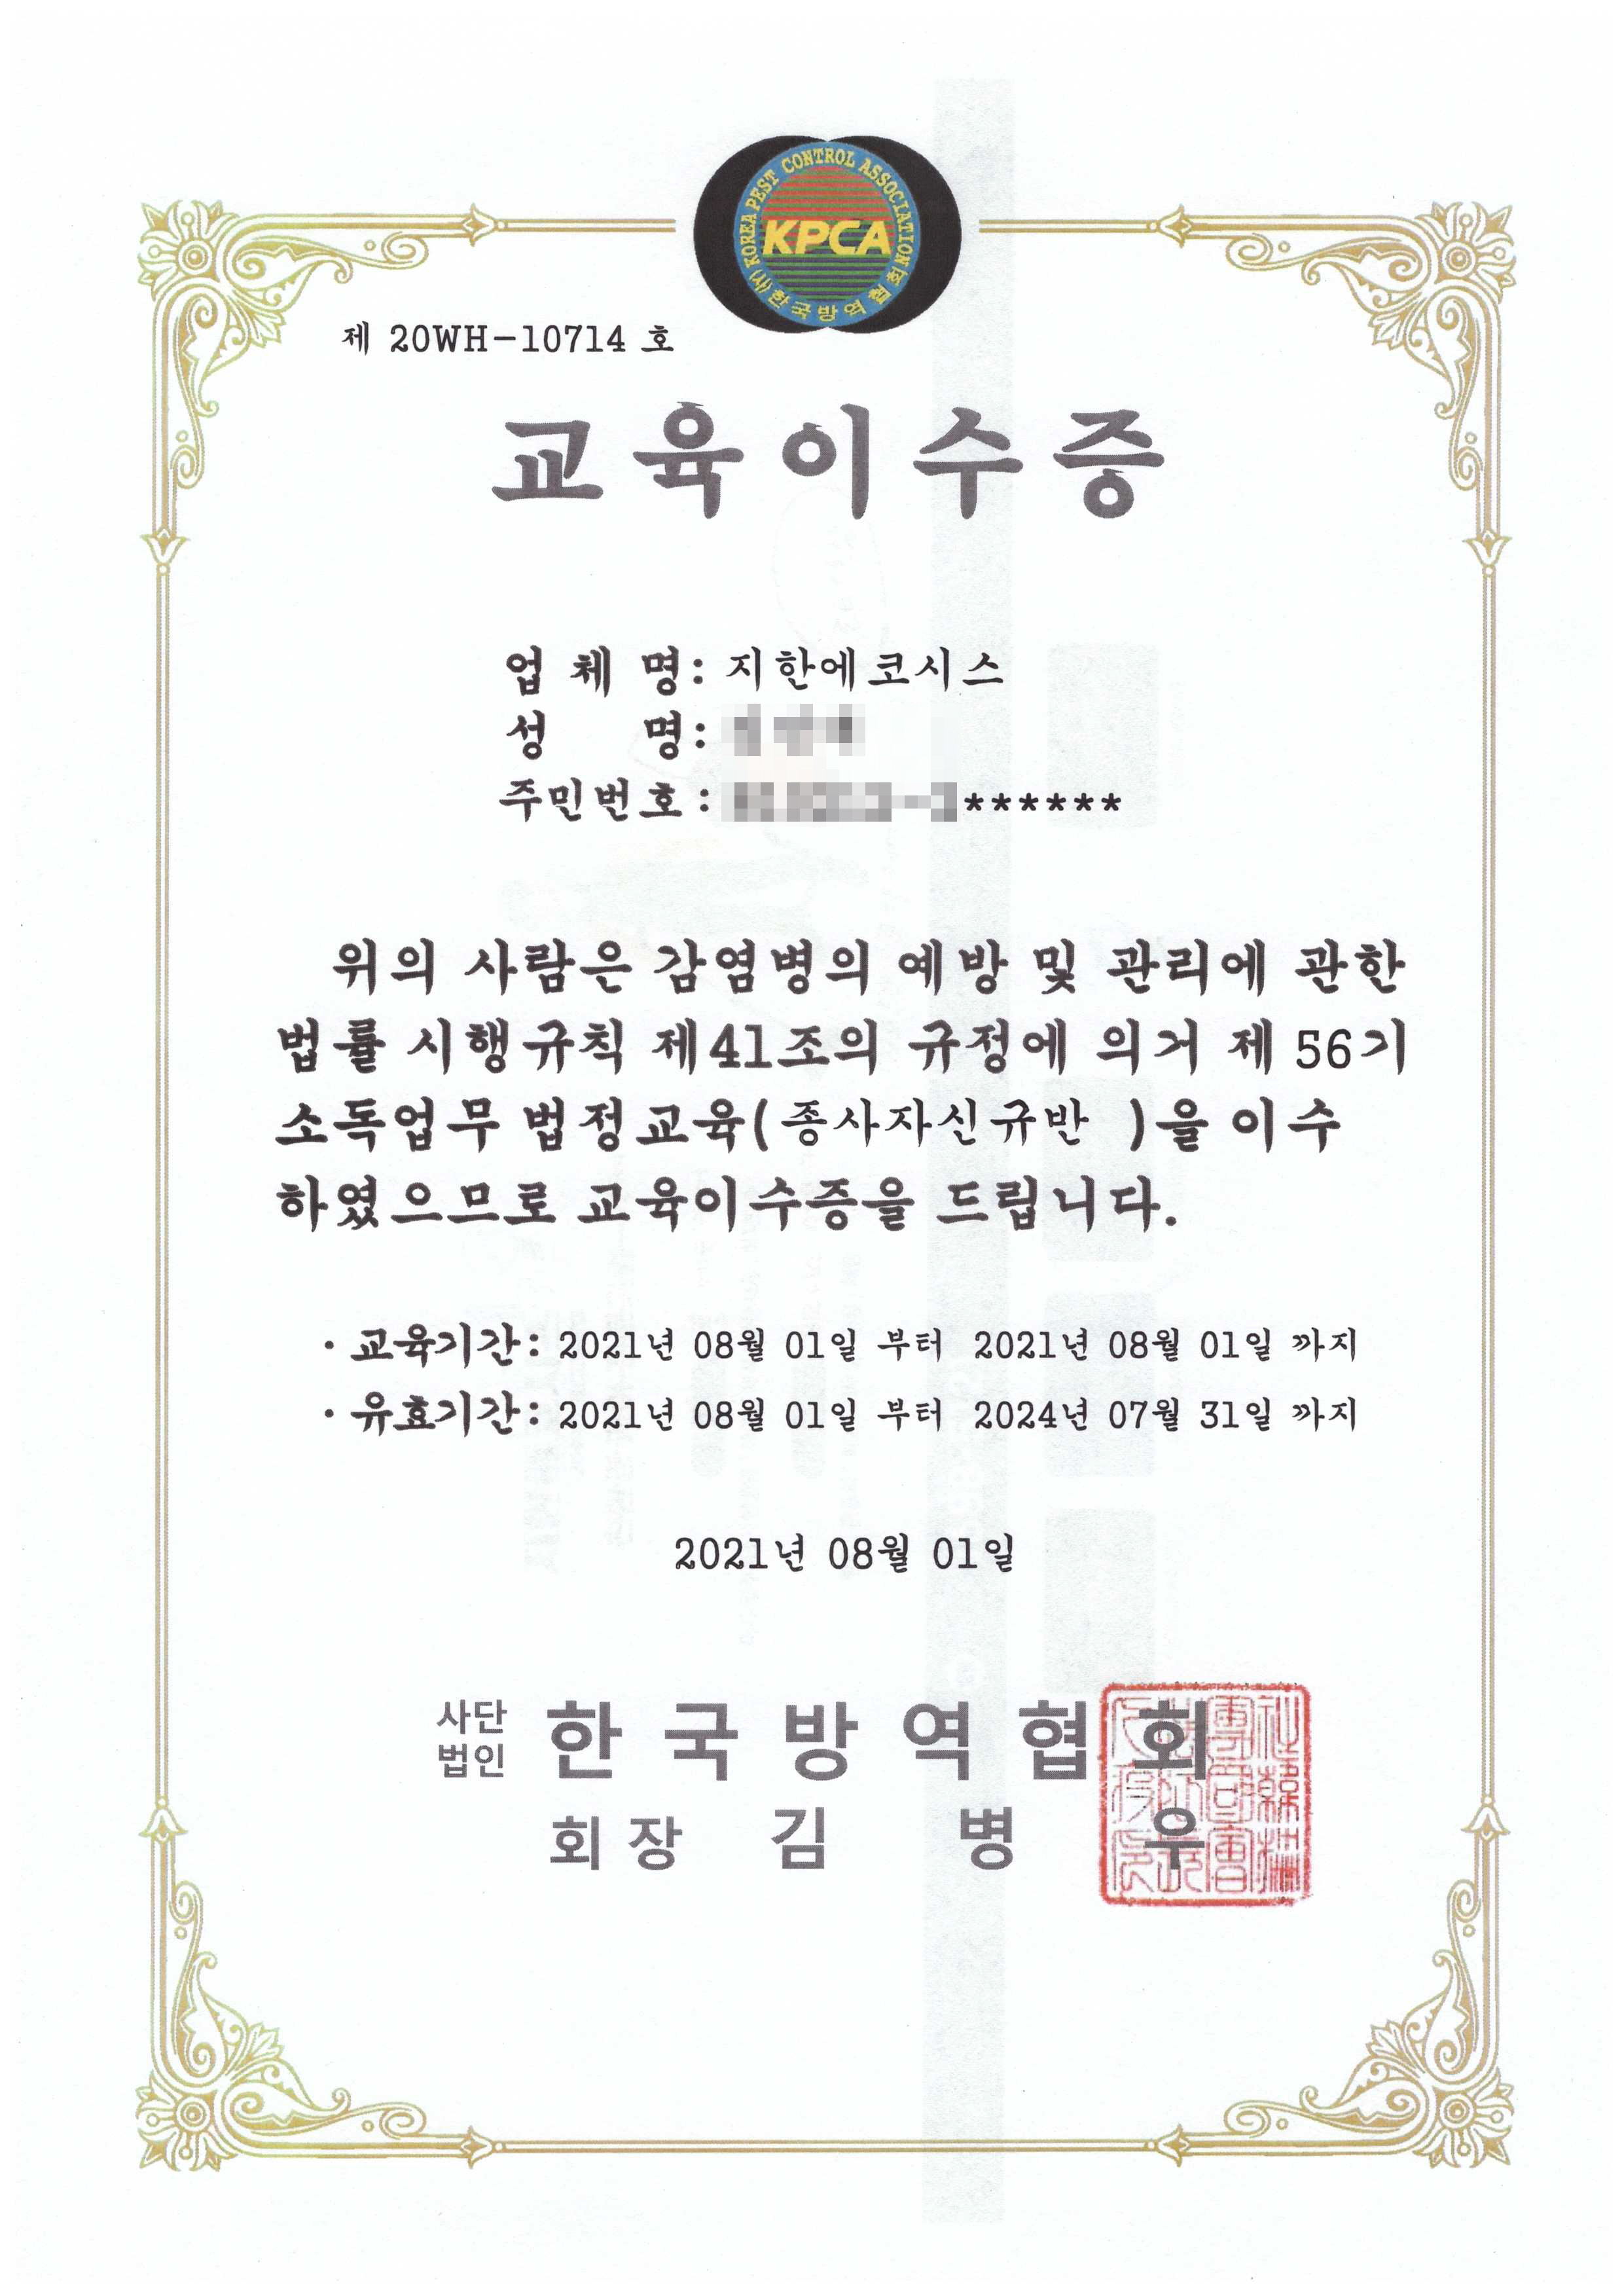 KOREA PEST CONTROL ASSOCIATION
KPCA
(사)한국방역협회
제 20WH-10714 호
교육이수증
업 체 명: 지한에코시스
성 명:
주민번호: ******
위의 사람은 감염병의 예방 및 관리에 관한
법률 시행규칙 제41조의 규정에 의거 제 56기
소독업무 법정교육( 종사자신규반 )을 이수
하였으므로 교육이수증을 드립니다.
· 교육기간: 2021년 08월 01일 부터 2021년 08월 01일 까지
· 유효기간: 2021년 08월 01일 부터 2024년 07월 31일 까지
2021년 08월 01일
사단법인 한국방역협회
회장 김병우